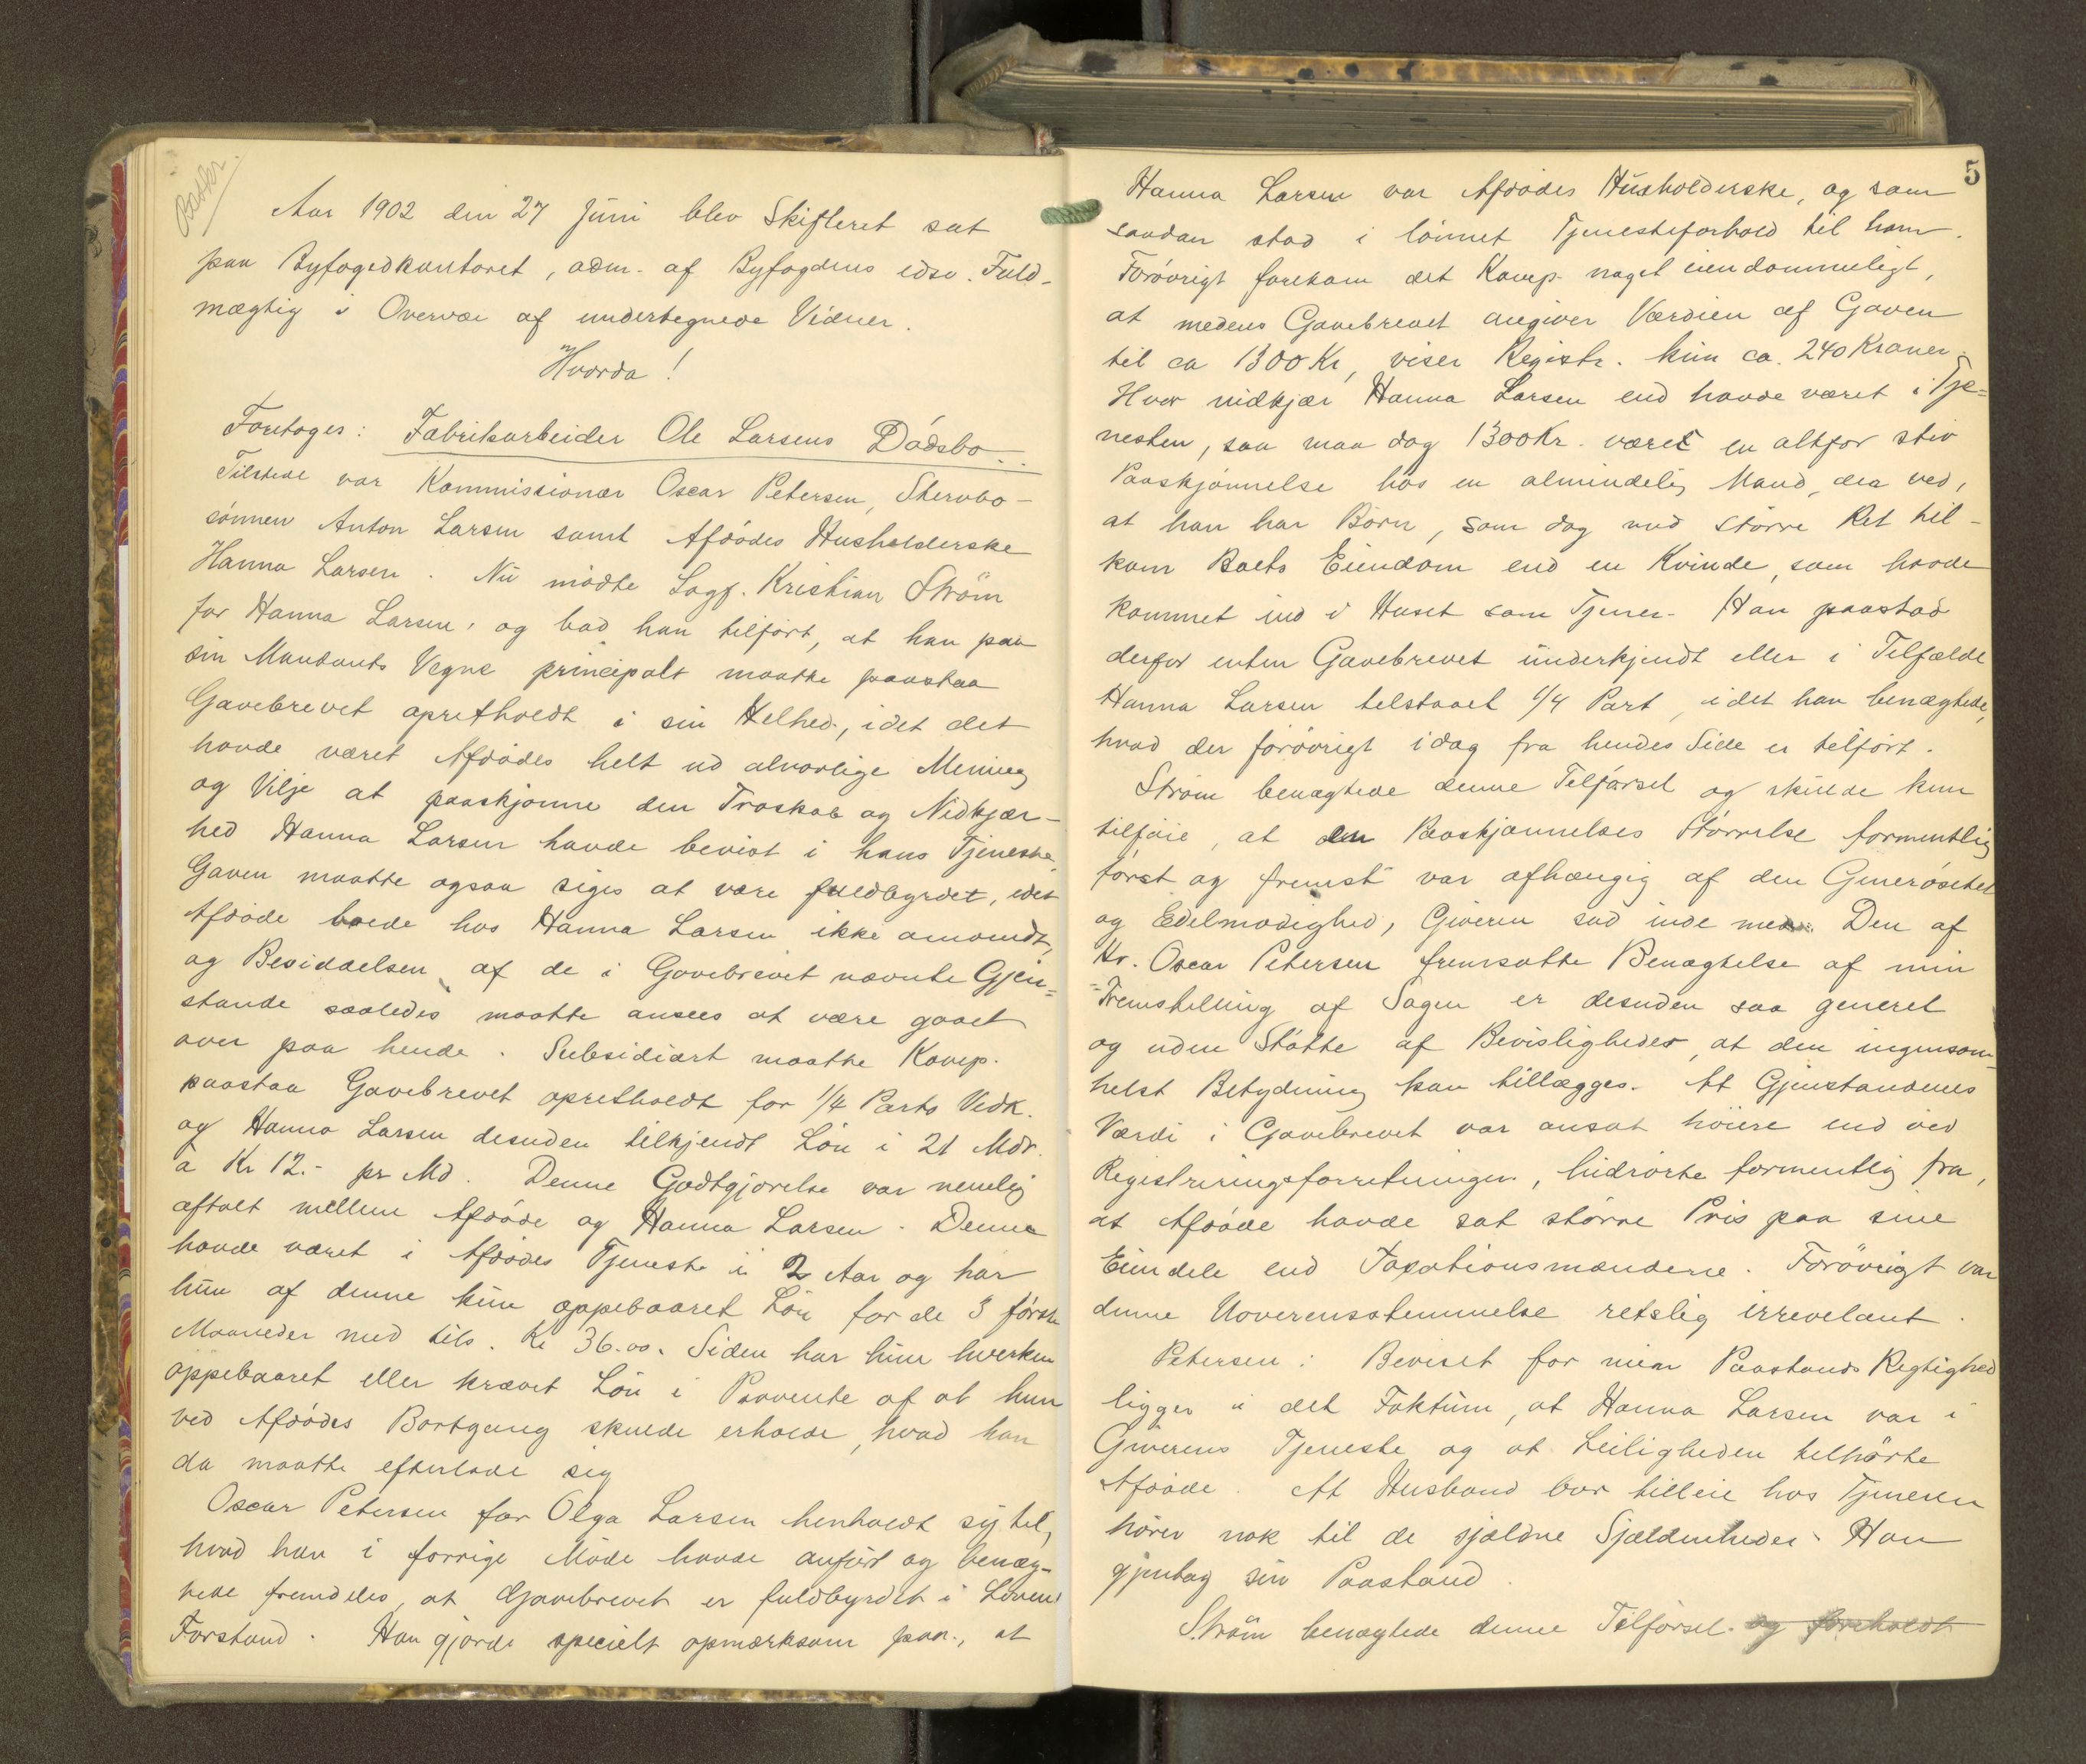 Beskr.
Aar 1902 den 27 Juni blev Skifteret sat
paa Byfogedkontoret, adm. af Byfogdens edsv. Fuld-
mægtig i Overvær af undertegnede Vidner.
Hvorda!
Foretoges: Fabrikarbeider Ole Larsens Dödsbo
Tilstede var Kommissionær Oscar Petersen, Stervbo-
sönnen Anton Larsen samt Afdödes Husholderske
Hanna Larsen. Nu mödte Sagf. Kristian Ström
for Hanna Larsen, og bad han tilfört, at han paa
sin Mandants Vegne principalt maatte paastaa
Gavebrevet opretholdt i sin Helhed, idet det
havde været Afdödes helt ud alvorlige Mening
og Vilje at paaskjönne den Troskab og Nidkjær-
hed Hanna Larsen havde bevist i hans Tjeneste.
Gaven maatte ogsaa siges at være fuldbyrdet, idet
Afdöde boede hos Hanna Larsen ikke omvendt,
og Besiddelsen af de i Gavebrevet nævnte Gjen=
stande saaledes maatte ansees at være gaaet
over paa hende. Subsidiært maatte Komp.
paastaa Gavebrevet opretholdt for 1/4 Parts Vedk.
og Hanna Larsen desuden tilkjendt Lön i 21 Mdr.
a Kr 12.- pr Md. Denne Godtgjörelse var nemlig
aftalt mellem Afdöde og Hanna Larsen. Denne
havde været i Afdödes Tjeneste i 2 Aar og har
hun af denne kun oppebaaret Lön for de 3 förste
Maaneder med tils. Kr 36.00. Siden har hun hverken
oppebaaret eller krævet Lön i Paavente af at hun
ved Afdödes Bortgang skulde erholde, hvad han
da maatte efterlade sig
Oscar Petersen for Olga Larsen henholdt sig til,
hvad han i forrige Möde havde anfört og benæg-
tede fremdeles, at Gavebrevet er fuldbyrdet i Lovens
Forstand. Han gjorde specielt opmærksom paa, at
5
Hanna Larsen var Afdödes Husholderske, og som
saadan stod i lönnet Tjenesteforhold til ham.
Forövrigt forekom det Komp. noget eiendommeligt,
at medens Gavebrevet angiver Værdien af Gaven
til ca 1300 Kr, viser Registr. kun ca. 240 Kroner.
Hvor nidkjær Hanna Larsen end havde været i Tje=
nesten, saa maa dog 1300 Kr. været en altfor stiv
Paaskjönnelse hos en almindelig Mand, der ved,
at han har Börn, som dog med större Ret til-
kom Boets Eiendom end en Kvinde, som havde
kommet ind i Huset som Tjener. Han paastod
derfor enten Gavebrevet underkjendt eller i Tilfælde
Hanna Larsen tilstaaet 1/4 Part, idet han benægtede,
hvad der forövrigt idag fra hendes Side er tilfört.
Ström benægtede denne Tilförsel og skulde kun
tilföie, at den Paaskjönnelses Störrelse formentlig
först og fremst var afhængig af den Generösitet
og Edelmodighed, Giveren sad inde med. Den af
Hr. Oscar Petersen fremsatte Benægtelse af min
Fremstilling af Sagen er desuden saa generel
og uden Stötte af Bevisligheder, at den ingensom-
helst Betydning kan tillægges. At Gjenstandenes
Værdi i Gavebrevet var ansat höiere end ved
Registreringsforretningen, hidrörte formentlig fra,
at Afdöde havde sat större Pris paa sine
Eiendele end Taxationsmændene. Forövrigt var
denne Uoverensstemmelse retslig irrevelant.
Petersen: Beviset for min Paastands Rigtighed
ligger i det Faktum, at Hanna Larsen var i
Giverens Tjeneste og at Leiligheden tilhörte
Afdöde. At Husbond bor tilleie hos Tjeneren
hörer nok til de sjældne Sjældenheder. Han
gjentog sin Paastand.
Ström benægtede denne Tilförsel. og foreholdt